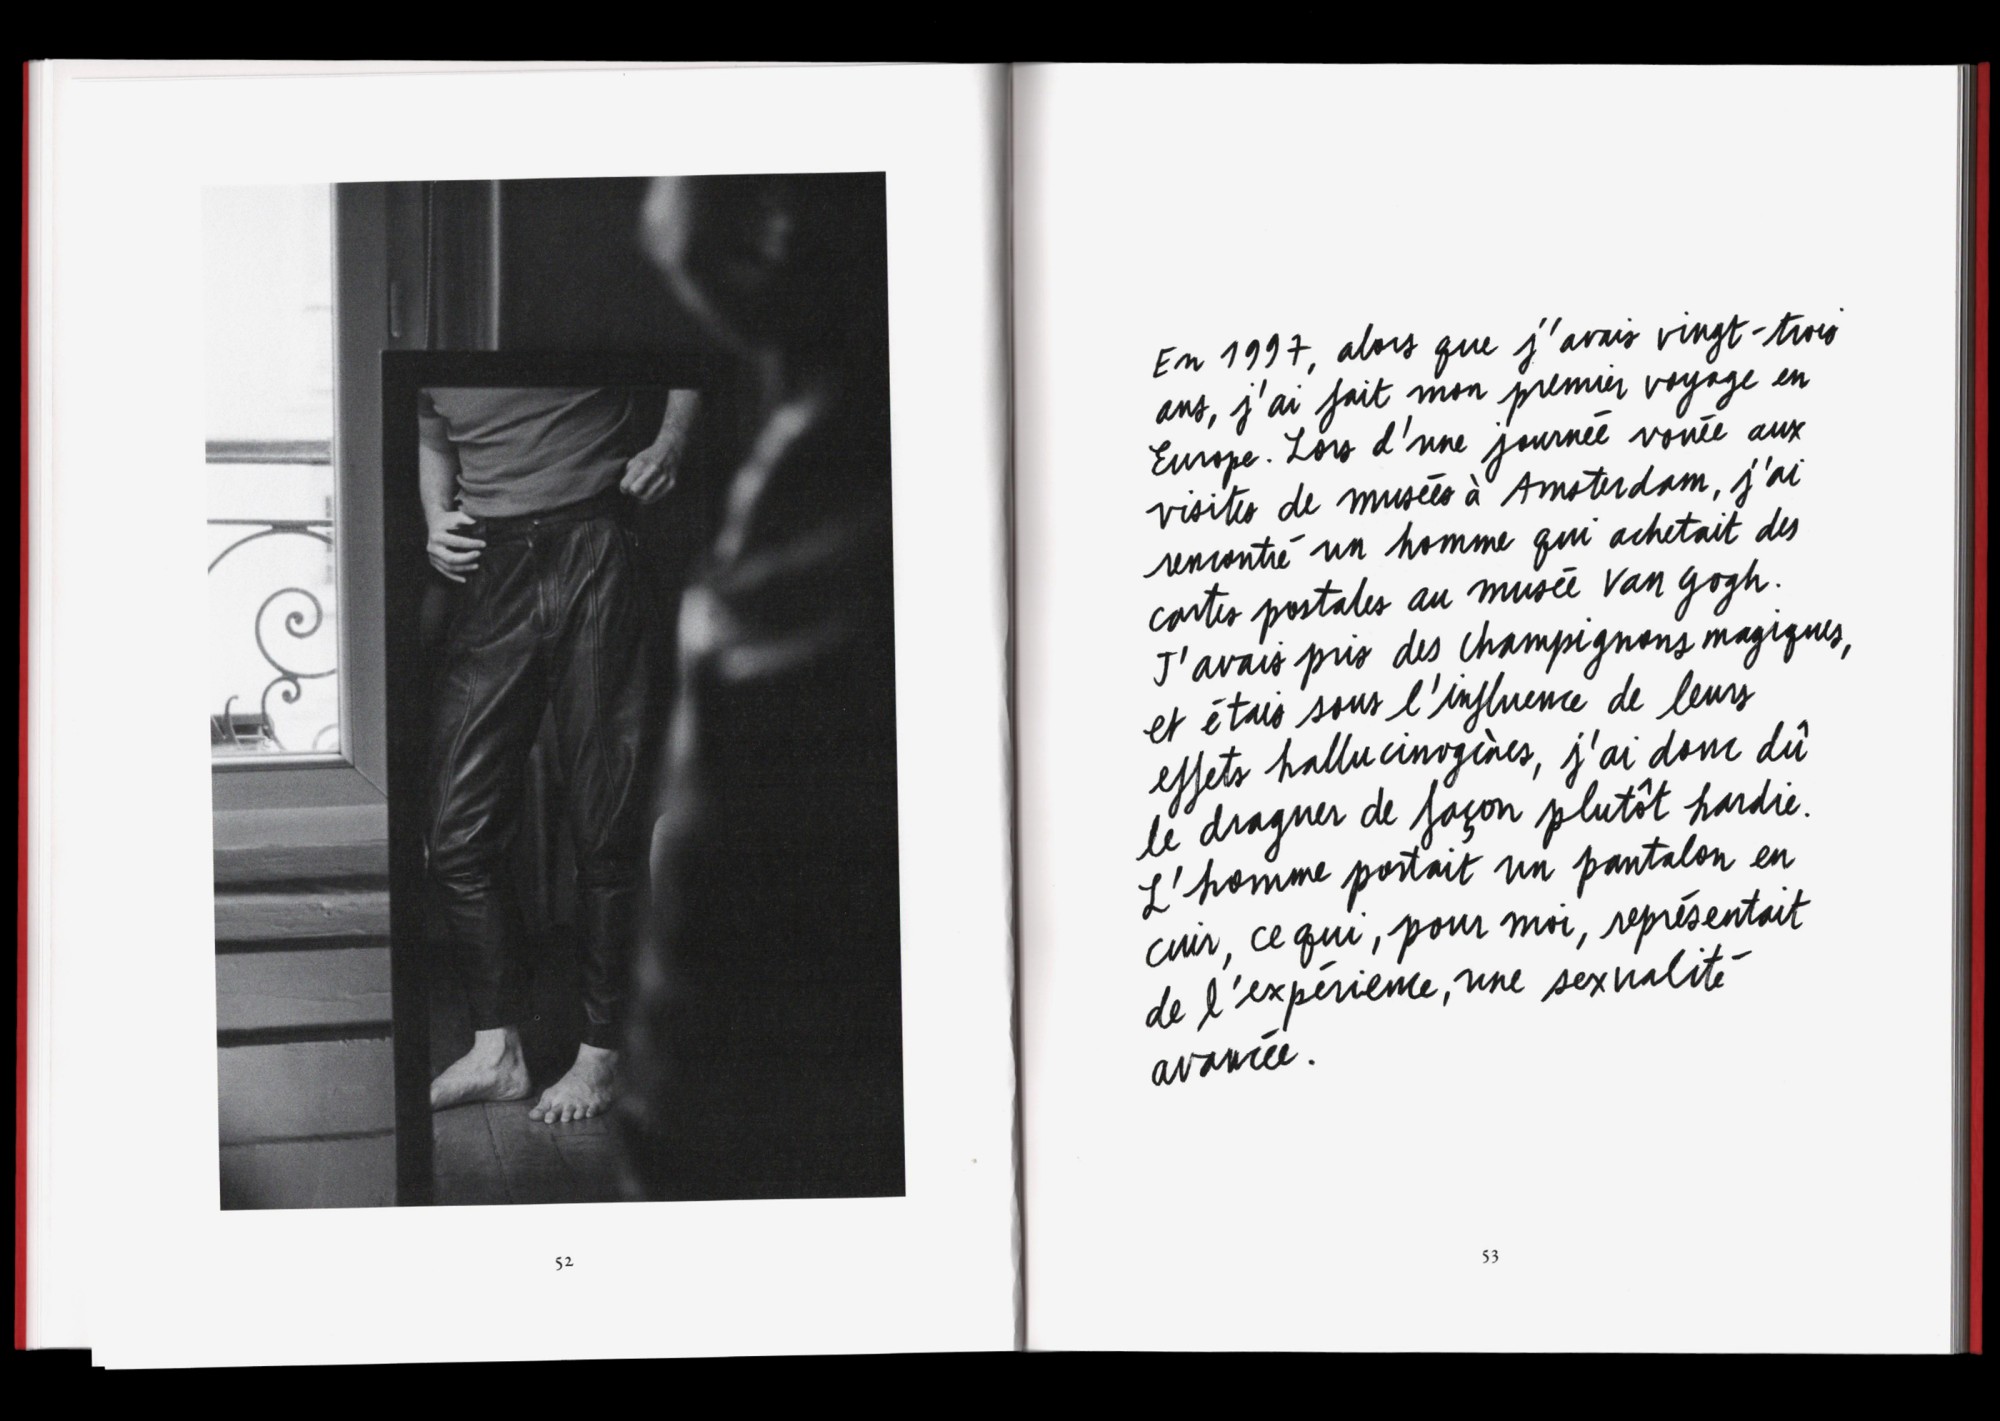 En 1997, alors que j'avais vingt-trois
ans, j'ai fait mon premier voyage en
Europe. Lors d'une journée vouée aux
visites de musées à Amsterdam, j'ai
rencontré un homme qui achetait des
cartes postales au musée Van Gogh.
J'avais pris des champignons magiques,
et étais sous l'influence de leurs
effets hallucinogènes, j'ai donc dû
le draguer de façon plutôt hardie.
L'homme portait un pantalon en
cuir, ce qui, pour moi, représentait
de l'expérience, une sexualité
avancée.
52
53